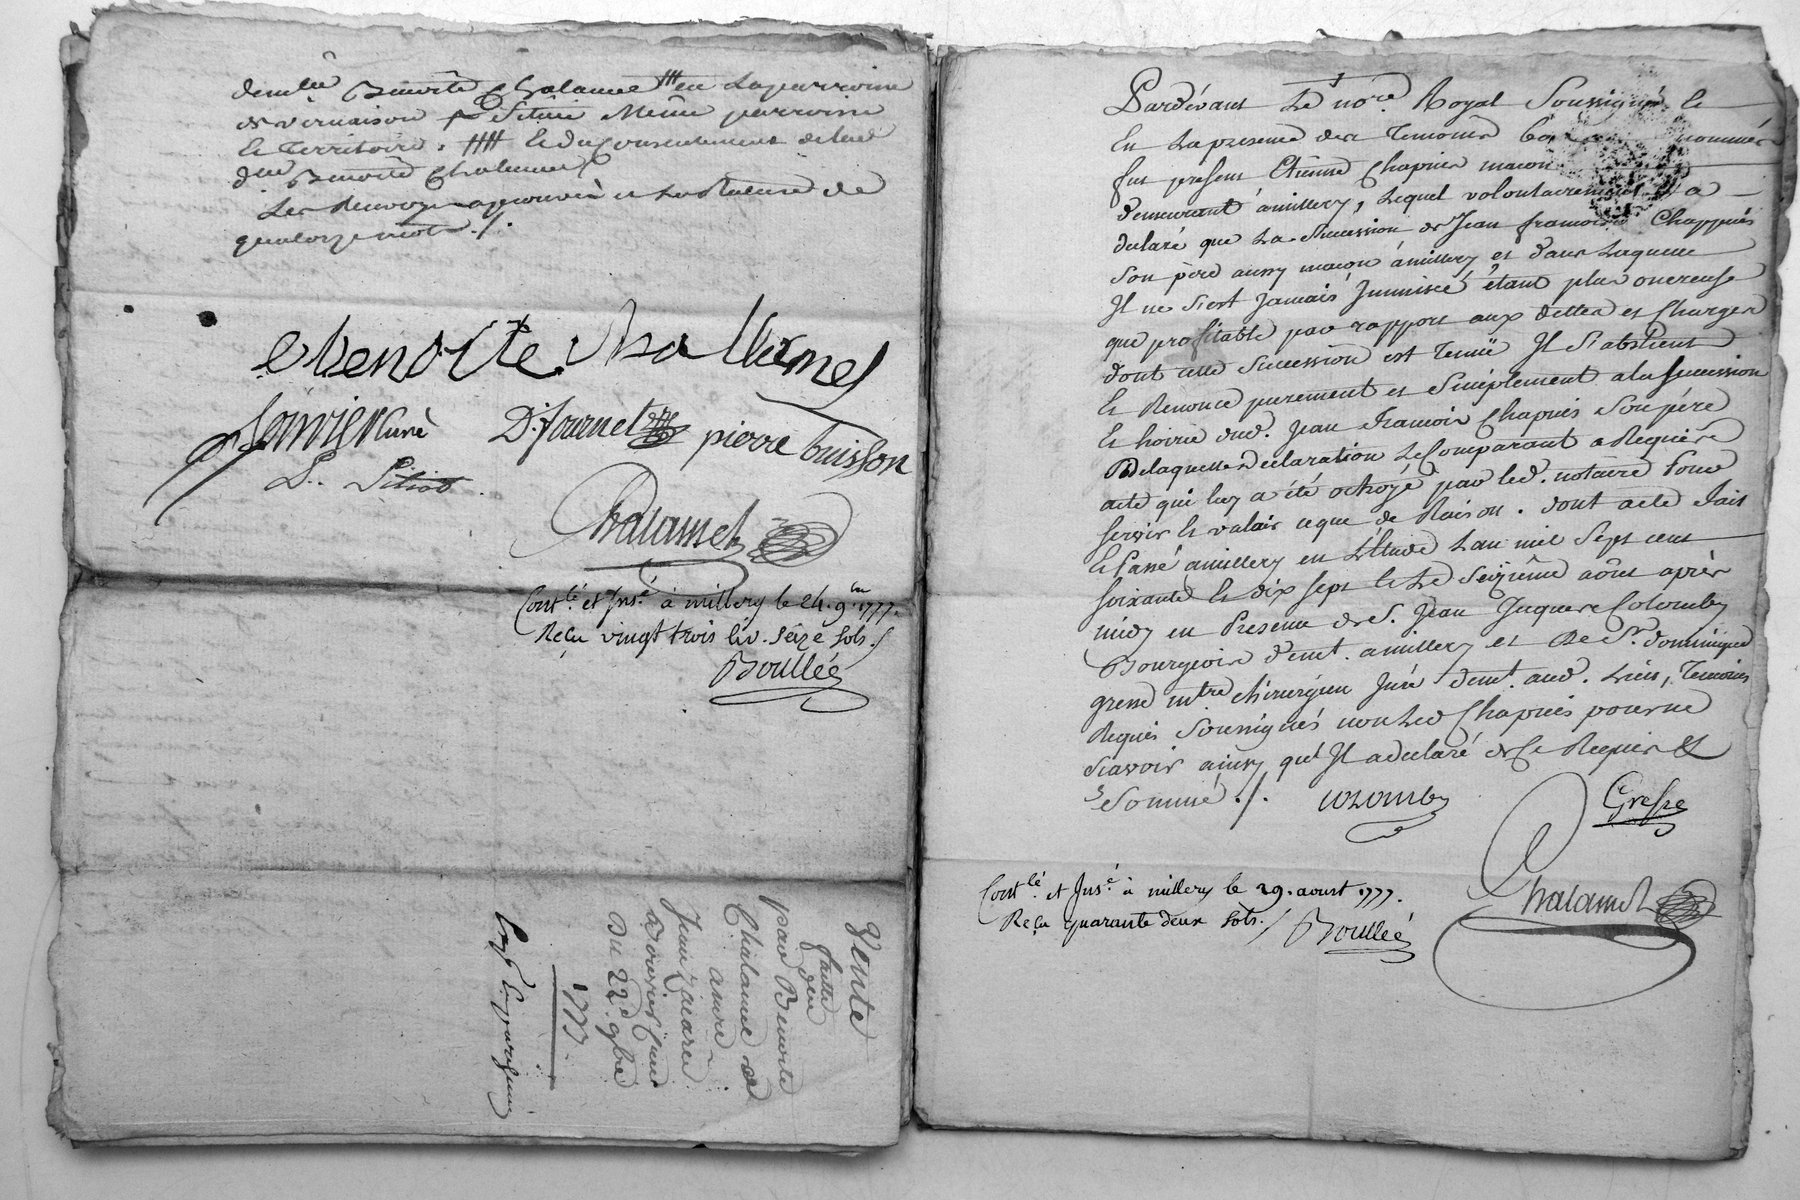 Benoite Chalamel en la parroisse
de vernaison Scituée Même parroisse
et Territoire. et du Consentement de lad
Benoite Chalamel
Les Renvoys approuvés et la Rature de
quatorze mots ./.
Benoite Challamel
Janvier Curé D. fournel pierre buisson
Chalamel
Contlé. et Insé. à millery le 24. 9bre 1777.
Reçu vingt trois liv. Seize sols ./
Boullée
Vente
faitte
par Benoite
Chalamel
a mre
Jean
Curé
Du 22e. 9bre
1777.
Pardevant Le nore Royal Soussigné et
En La presence des Temoins nommés
fut present Etienne Chapuis macon
demeurant à millery, Lequel volontairement a
declaré que La Succession de Jean francois Chappuis
Son père aussy macon à millery et dans Laquelle
Il ne s'est Jamais Immiscé étant plus onereuse
que profitable par rapport aux dettes et Charges
dont cette Succession est Tenüe Il S'abstient
et Renonce purement et Simplement a la Succession
et hoirie dud. Jean Francois Chapuis Son père
De laquelle Declaration Le Comparant a Requis
acte qui luy a été octroyé par led. notaire Pour
servir et valoir ce que de Raison. dont acte Fait
et Passé a millery en L'Etude L'an mil Sept cent
soixante et dix sept et Le Seizième aôust après
midy en Presence de S. Jean Jacques Colomby
Bourgeois demt. a millery et De Sr. dominique
gresse mtre chirurgien Juré demt. aud. Lieu, Temoins
Requis Soussignés non Led Chapuis pour ne
Scavoir ainsy qu'Il a declaré de Ce Requis &
Sommé ./. Colomby Gresse
Chalamel
Contlé et Insé. à millery le 29. aoust 1777.
Reçu quarante deux sols ./ Boullée